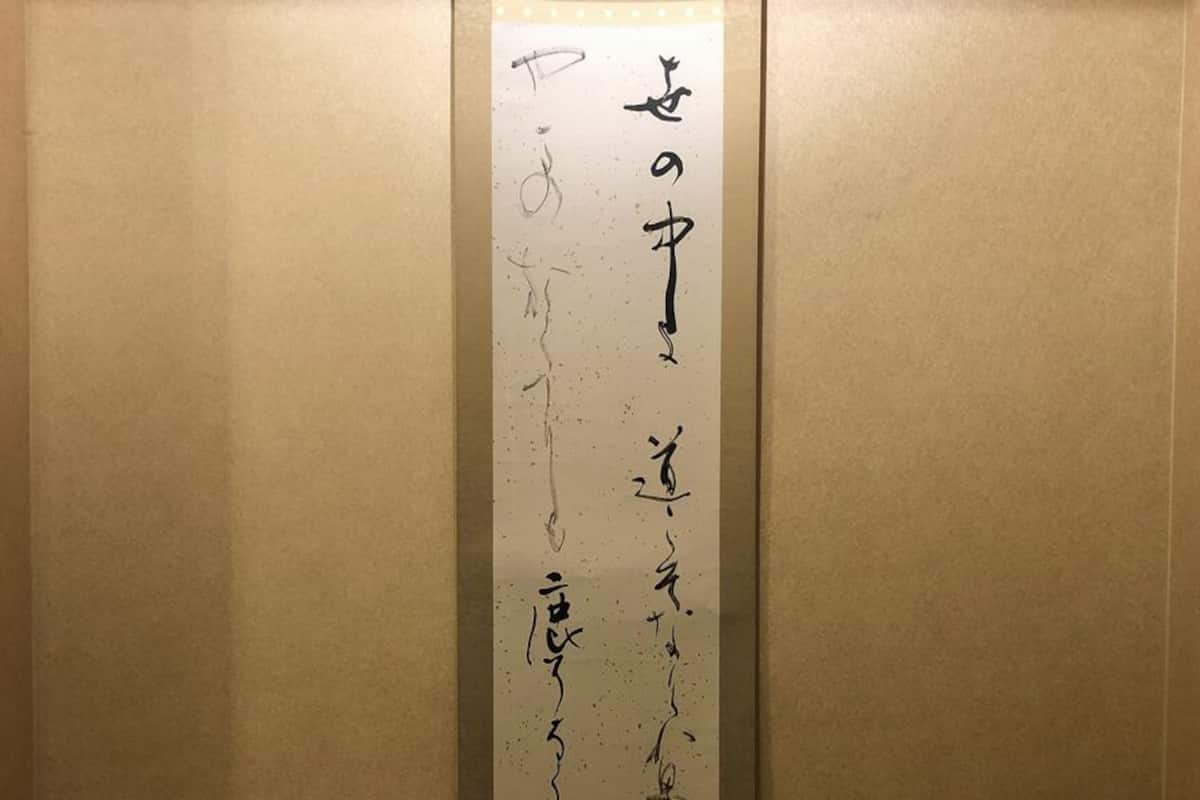 世の中よ道こそなけれ思
やまのおくにも鹿そな